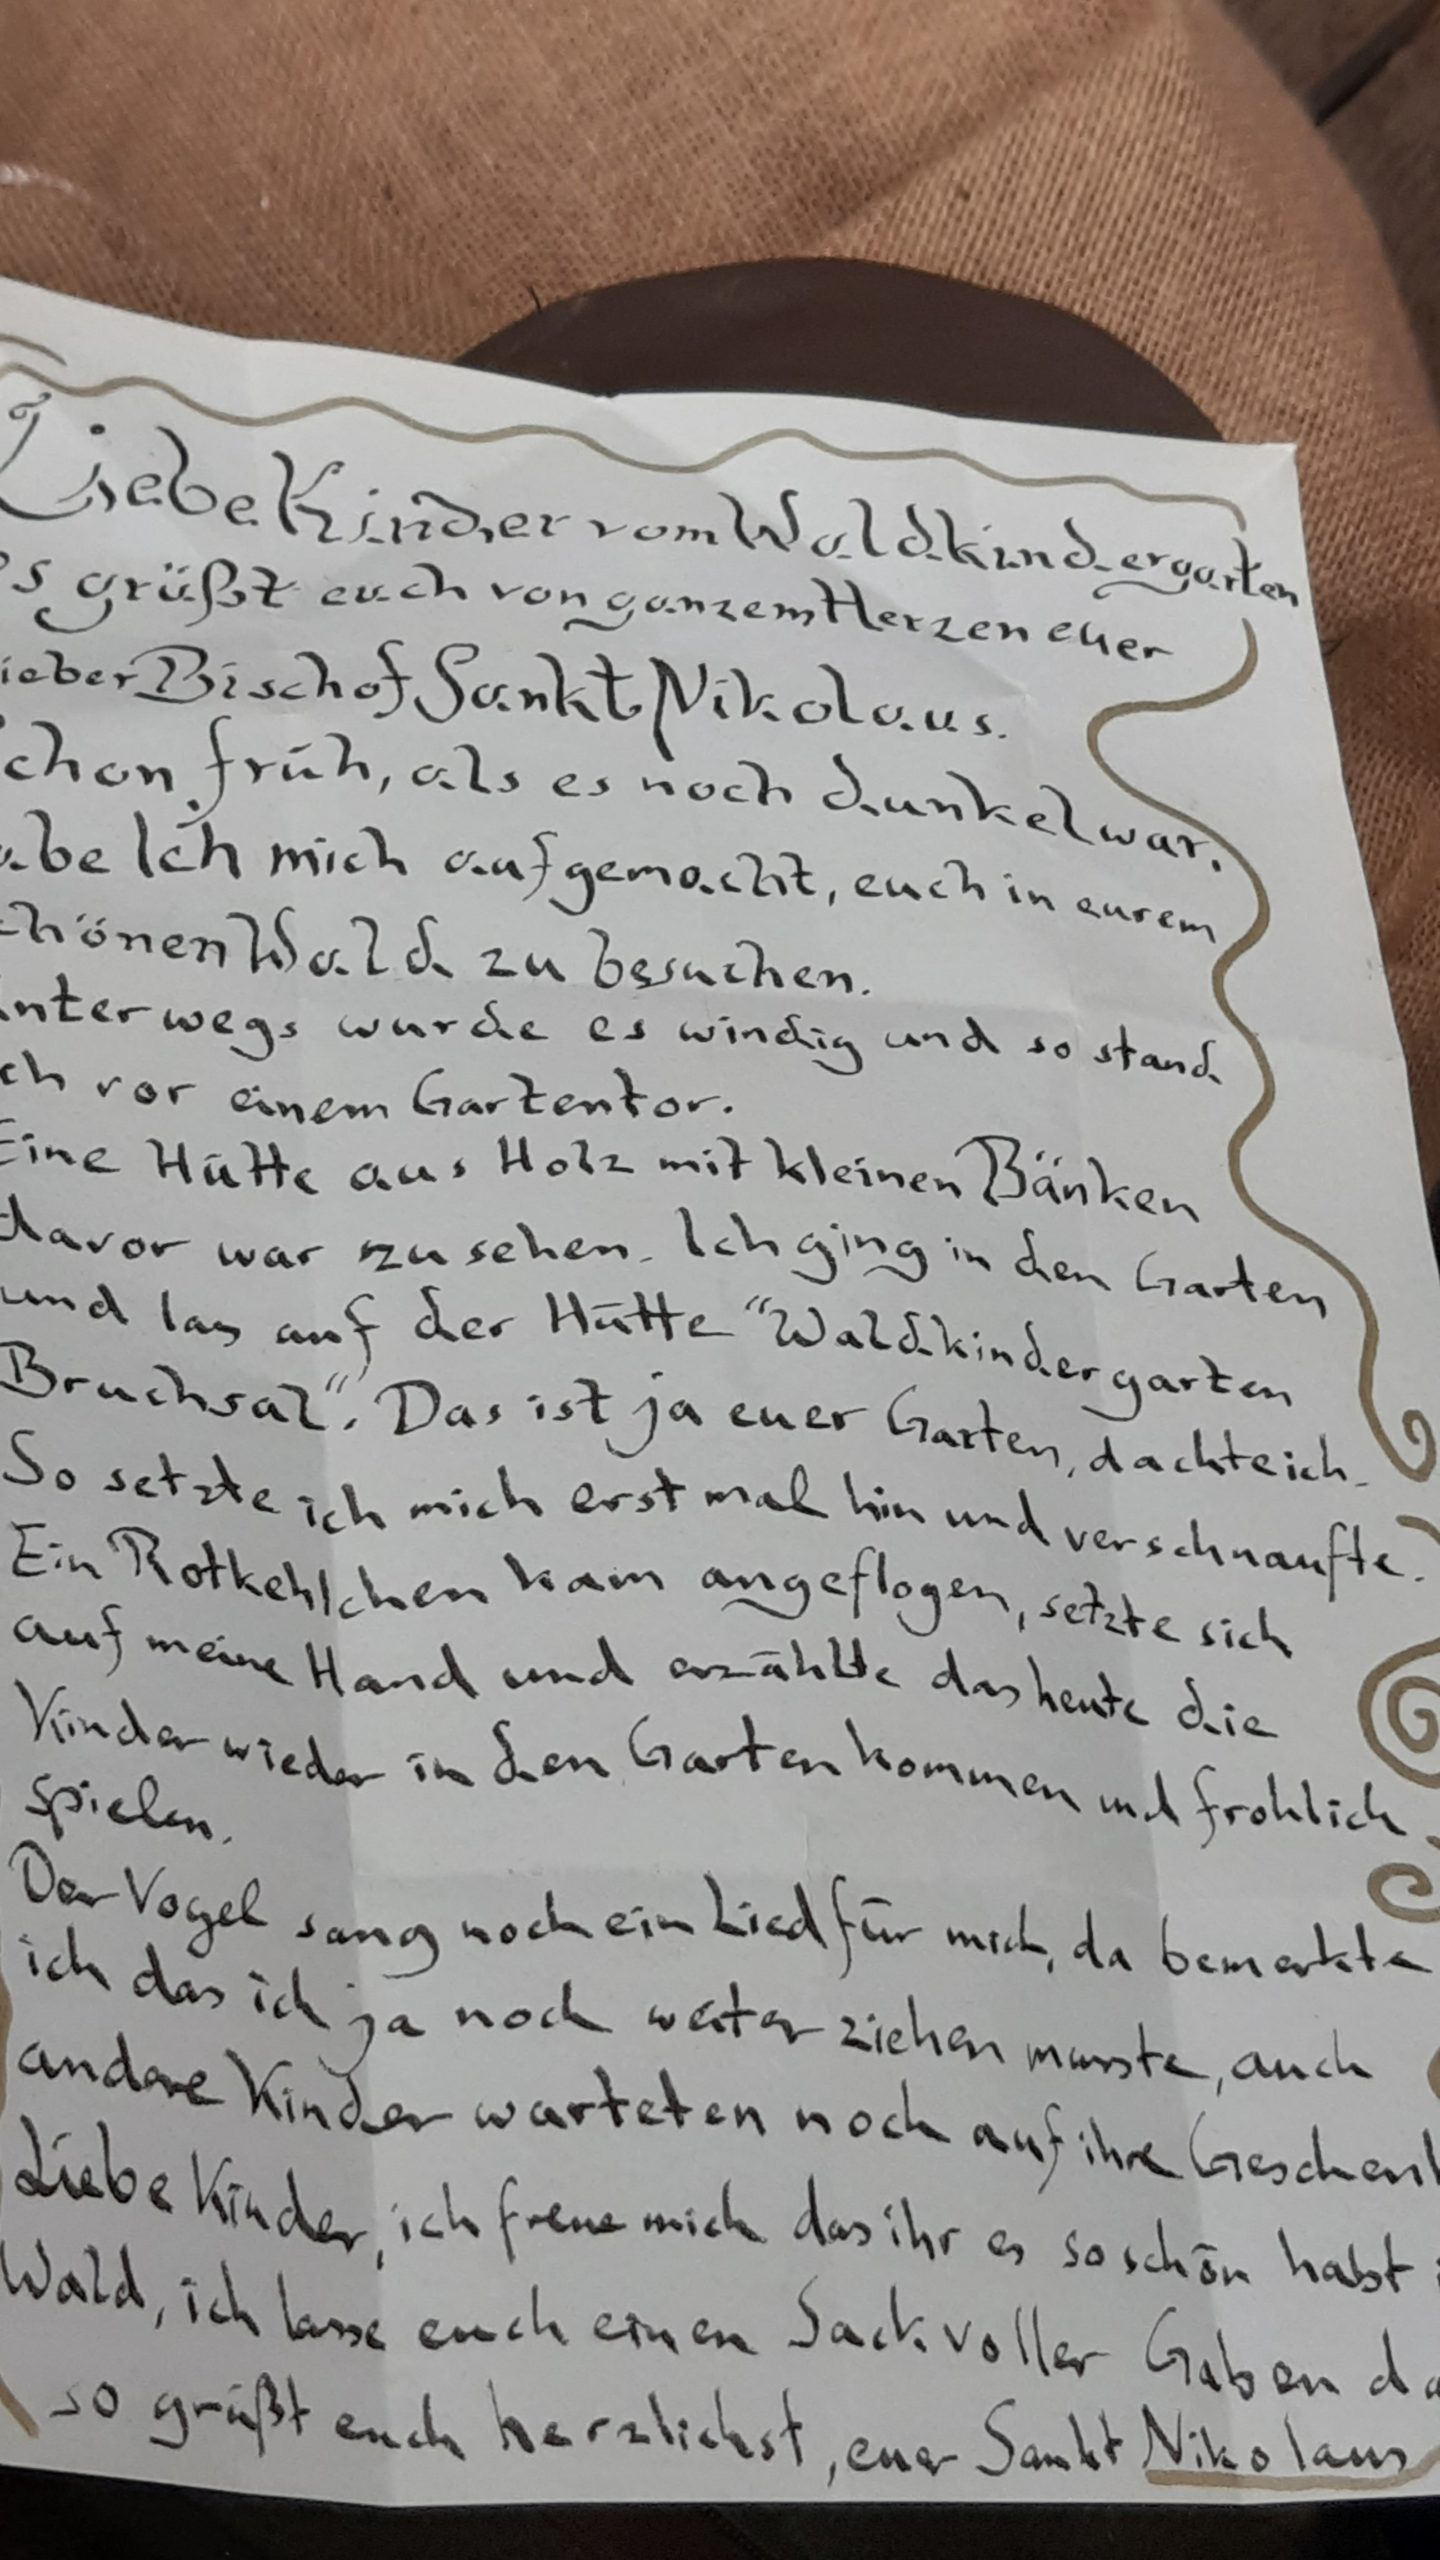 Liebe Kinder vom Waldkindergarten
es grüßt euch von ganzem Herzen euer
lieber Bischof Sankt Nikolaus.
schon früh, als es noch dunkel war,
abe Ich mich aufgemacht, euch in eurem
chönen Wald zu besuchen.
unterwegs wurde es windig und so stand
ich vor einem Gartentor.
Eine Hütte aus Holz mit kleinen Bänken
davor war zu sehen. Ich ging in den Garten
und las auf der Hütte "Waldkindergarten
Bruchsal". Das ist ja euer Garten, dachte ich.
So setzte ich mich erst mal hin und verschnaufte.
Ein Rotkehlchen kam angeflogen, setzte sich
auf meine Hand und erzählte das heute die
Kinder wieder in den Garten kommen und frohlich
spielen.
Der Vogel sang noch ein Lied für mich, da bemerkte
ich das ich ja noch weiter ziehen musste, auch
andere Kinder warteten noch auf ihre Geschenk
Liebe Kinder, ich freue mich das ihr es so schön habt i
Wald, ich lasse euch einen Sack voller Gaben da
so grüßt euch herzlichst, euer Sankt Nikolaus